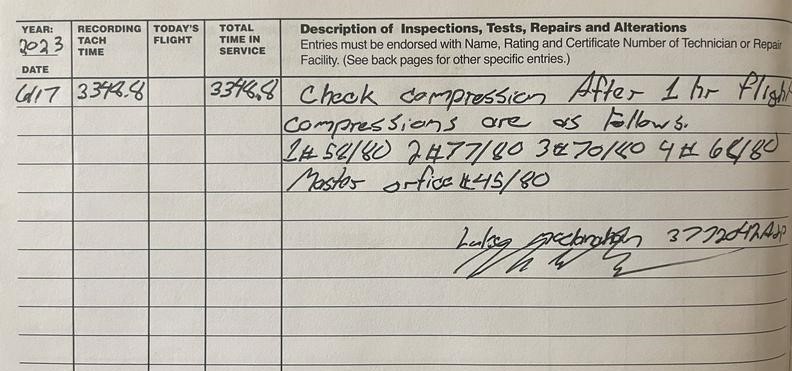 YEAR: 2023
RECORDING TACH TIME
TODAY'S FLIGHT
TOTAL TIME IN SERVICE
Description of Inspections, Tests, Repairs and Alterations
Entries must be endorsed with Name, Rating and Certificate Number of Technician or Repair
Facility. (See back pages for other specific entries.)
DATE
6/17 3348.8 3348.8 Check compression After 1 hr flight
compressions are as follows.
1# 58/80 2#77/80 3#70/80 4# 68/80
Master orfice #45/80